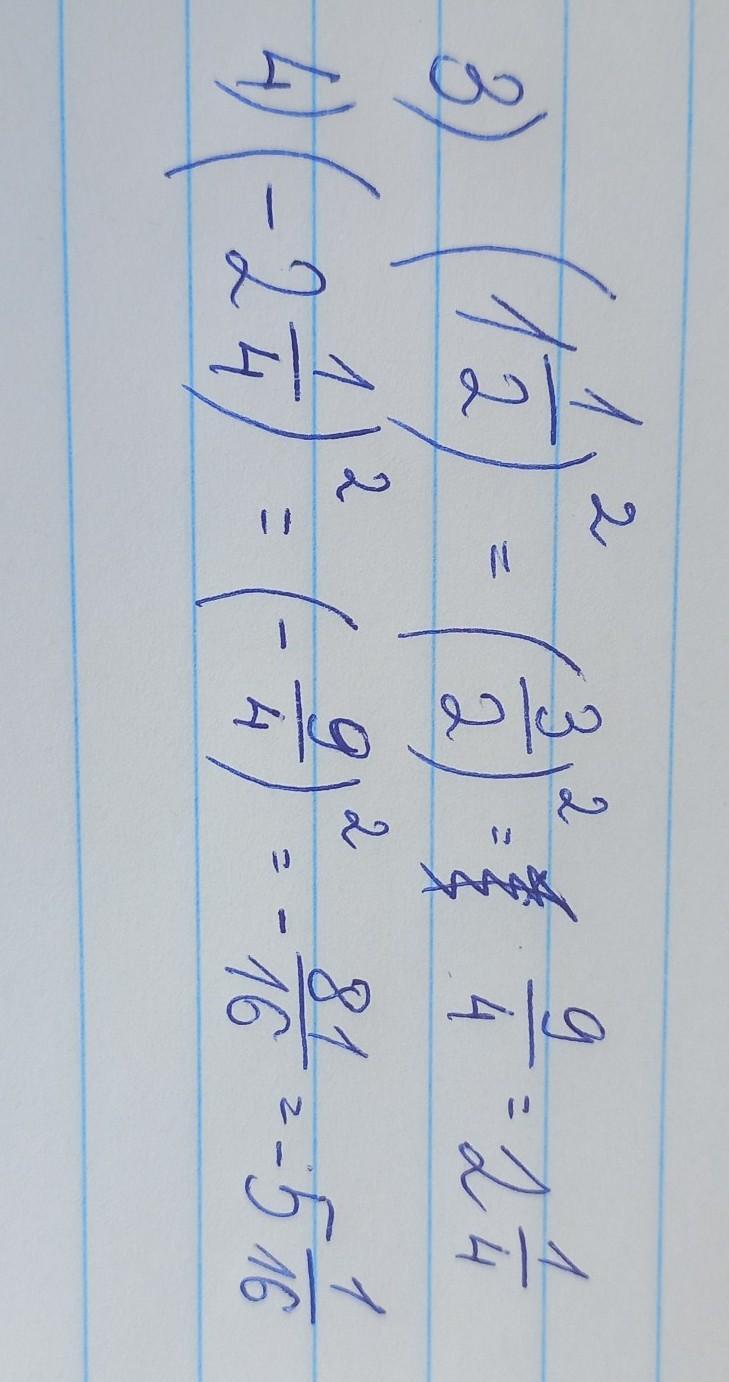 3) (1 1/2)² = (3/2)² = 9/4 = 2 1/4
4) (-2 1/4)² = (-9/4)² = -81/16 = -5 1/16